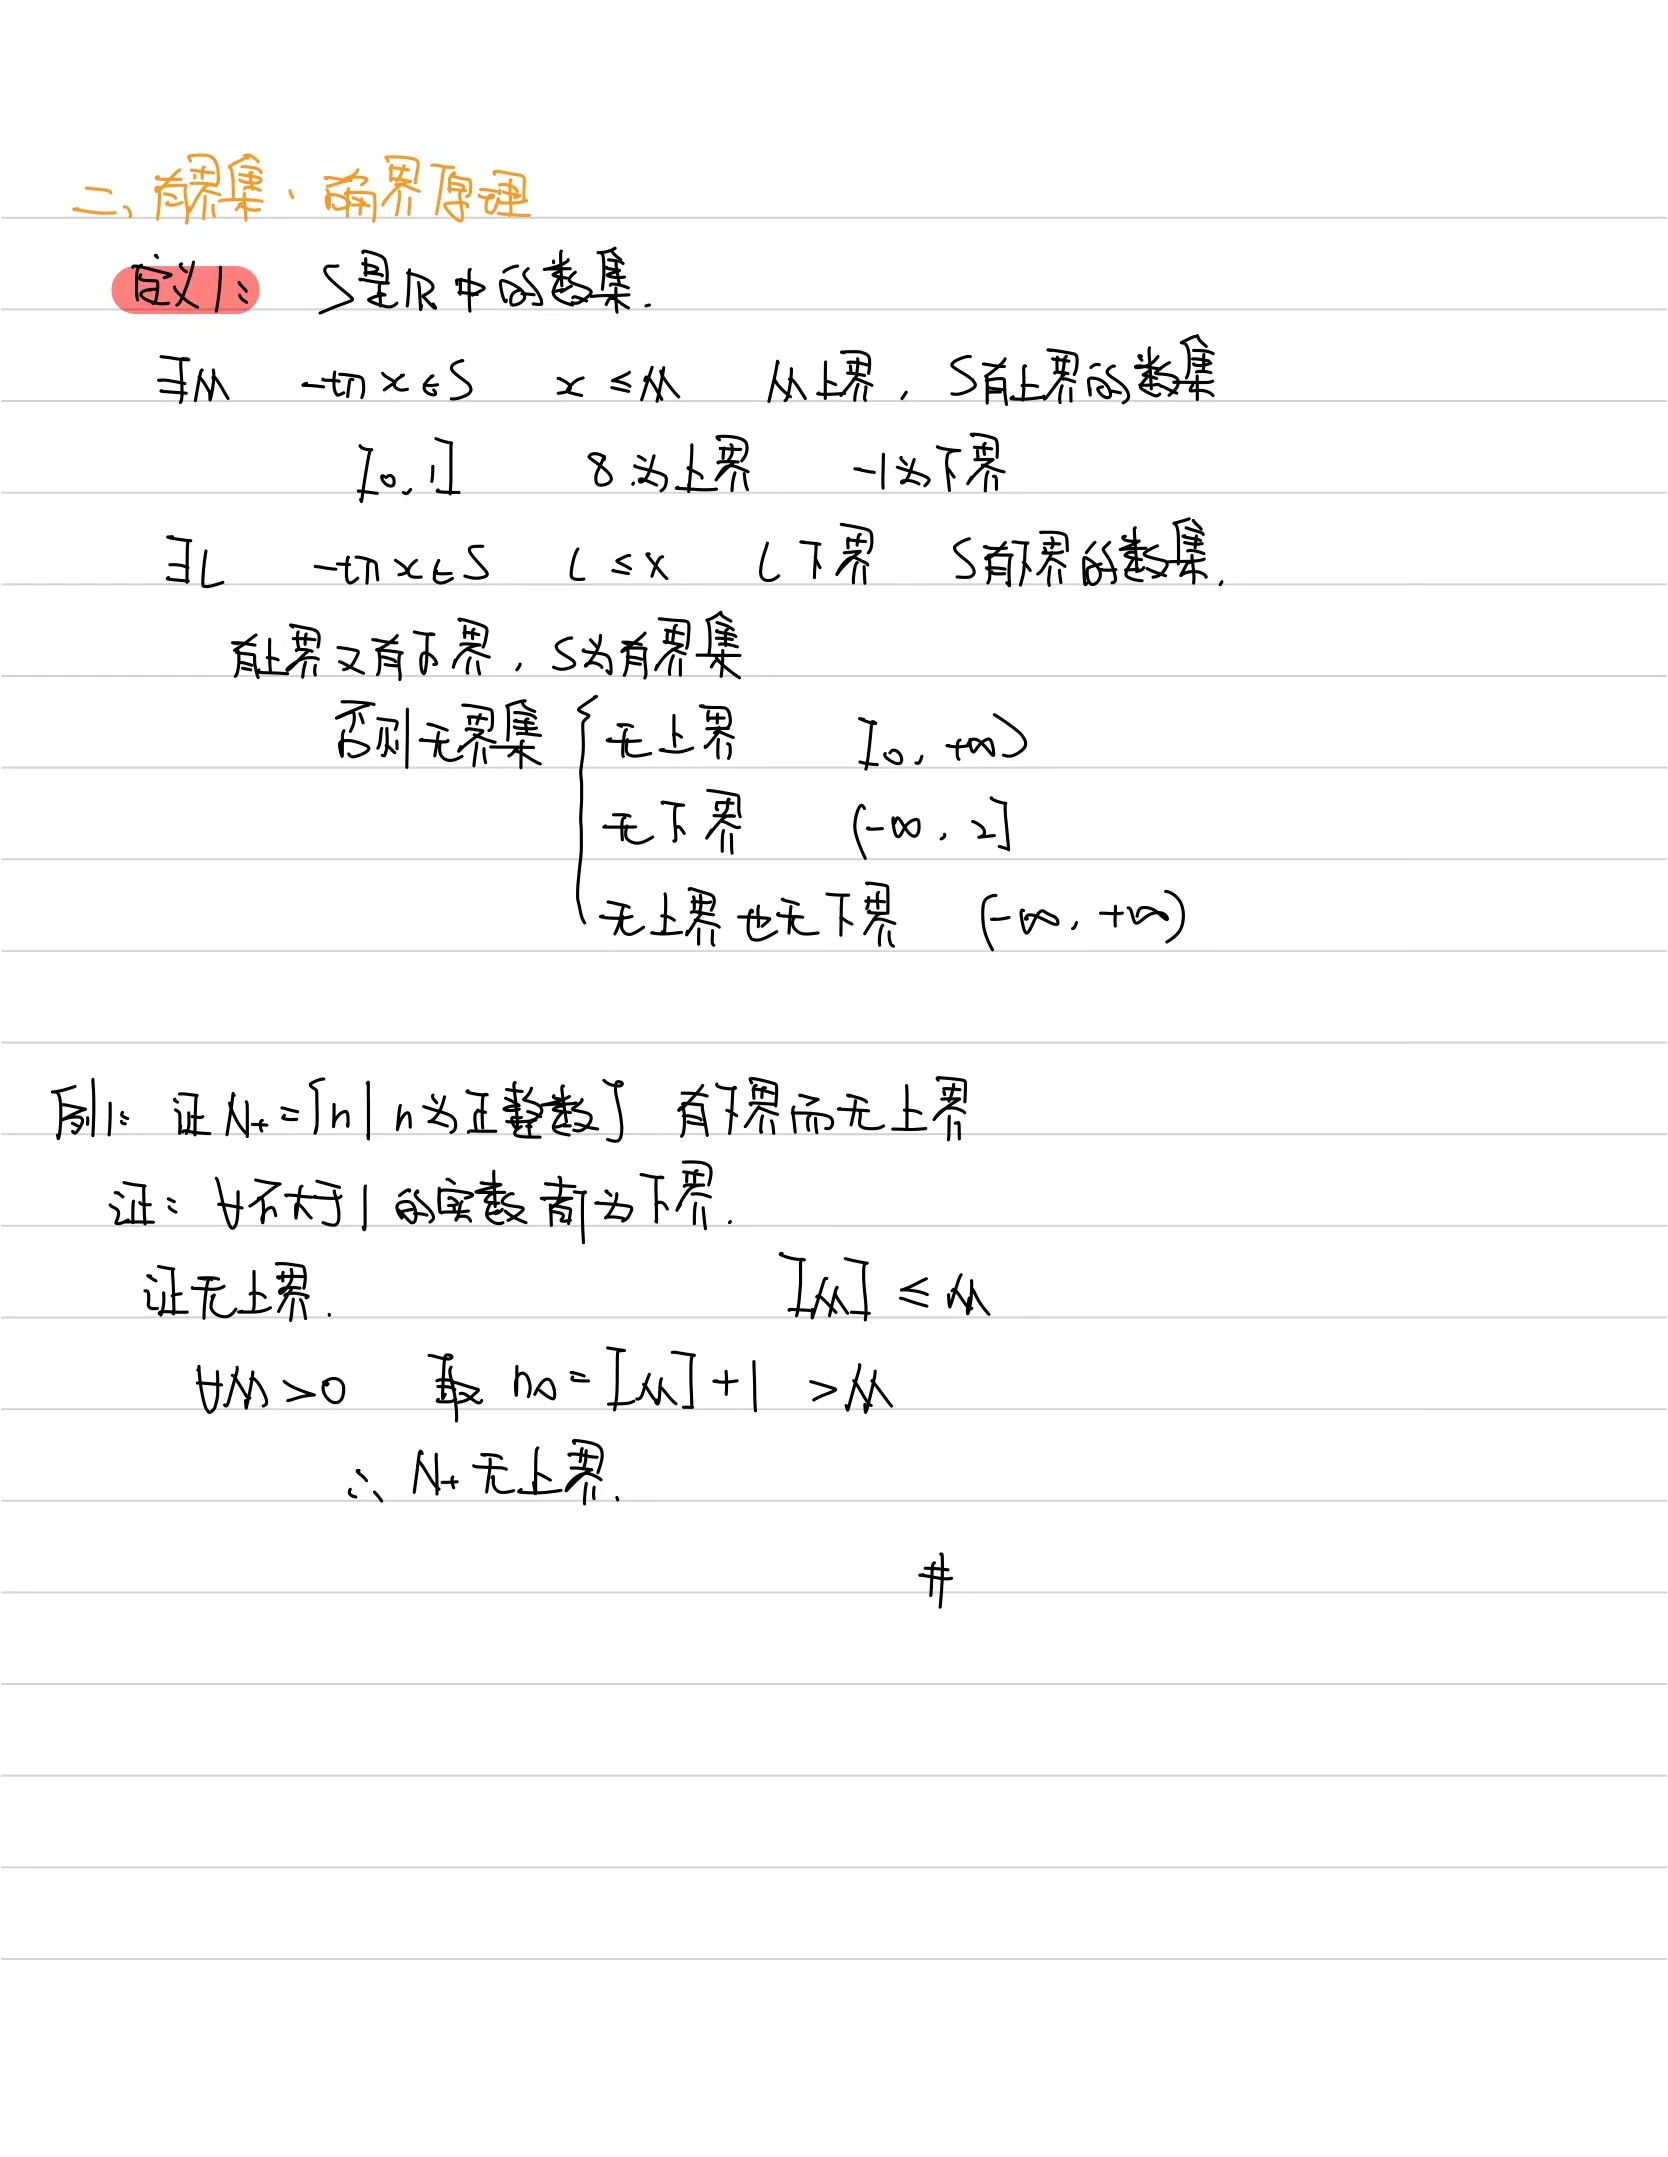 二、有界集·确界原理
定义1: S是R中的数集.
∃M 一切x∈S x≤M M上界, S有上界的数集
[0,1] 8为上界 -1为下界
∃L 一切x∈S L≤x L下界 S有下界的数集.
有上界又有下界, S为有界集
否则无界集 { 无上界 [0, +∞)
无下界 (-∞, 2]
无上界也无下界 (-∞, +∞)
例1: 证N+={n|n为正整数} 有下界而无上界
证: ∀不大于1的实数都为下界.
证无上界. [M]≤M
∀M>0 取 n0=[M]+1 >M
∴ N+无上界.
#